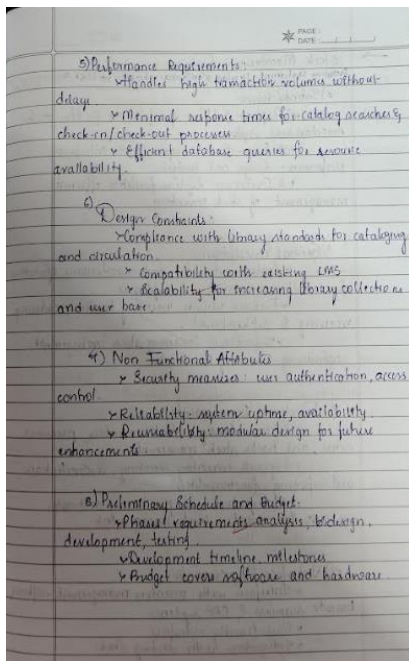 PAGE:
DATE:
5) Performance Requirements:
➤ Handles high tranaction volumes without
delays
➤ Minimal response times for catalog searches &
check-in/check-out processes
➤ Efficient database queries for resource
availability.
6)
Design Constraints:
➤ Compliance with library standards for cataloging
and circulation.
➤ Compatibility with existing LMS
➤ Scalability for increasing library collections
and user base
7) Non Functional Attributes
➤ Security measures: user authentication, access
control.
➤ Reliability: system uptime, availability
➤ Reusability: modular design for future
enhancements
8) Preliminary Schedule and Budget:
➤ Phases: requirements analysis, design,
development, testing.
➤ Development timeline milestones
➤ Budget covers software and hardware.